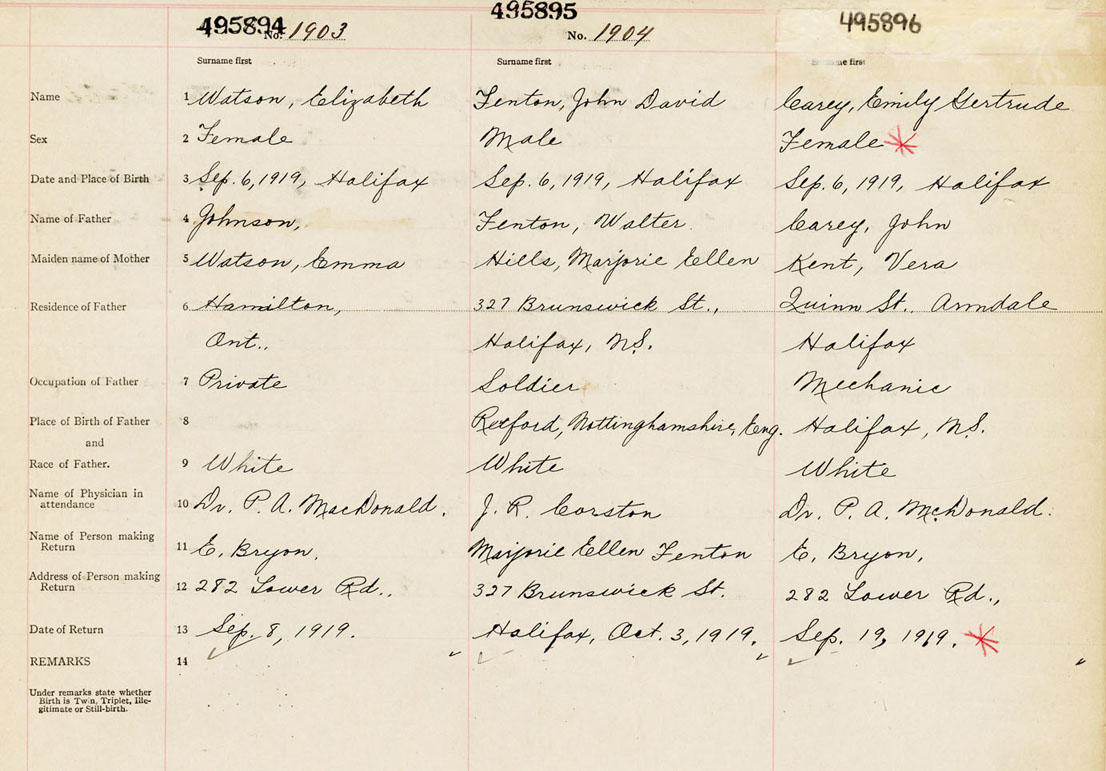 495894 495895 495896
No. 1903 No. 1904
Surname first Surname first me first
Name 1 Watson, Elizabeth Fenton, John David Carey, Emily Gertrude
Sex 2 Female Male Female
Date and Place of Birth 3 Sep. 6, 1919, Halifax Sep. 6, 1919, Halifax Sep. 6, 1919, Halifax
Name of Father 4 Johnson, Fenton, Walter Carey, John
Maiden name of Mother 5 Watson, Emma Hills, Marjorie Ellen Kent, Vera
Residence of Father 6 Hamilton, 327 Brunswick St., Quinn St. Armdale
Ont., Halifax, N.S. Halifax
Occupation of Father 7 Private Soldier Mechanic
Place of Birth of Father 8 Retford, Nottinghamshire, Eng. Halifax, N.S.
and
Race of Father. 9 White White White
Name of Physician in
attendance 10 Dr. P. A. MacDonald. J. R. Corston Dr. P. A. McDonald.
Name of Person making
Return 11 E. Bryon. Marjorie Ellen Fenton E. Bryon,
Address of Person making
Return 12 282 Lower Rd., 327 Brunswick St. 282 Lower Rd.,
Date of Return 13 Sep. 8, 1919. Halifax, Oct. 3, 1919. Sep. 19, 1919.
REMARKS 14
Under remarks state whether
Birth is Twin, Triplet, Ille-
gitimate or Still-birth.